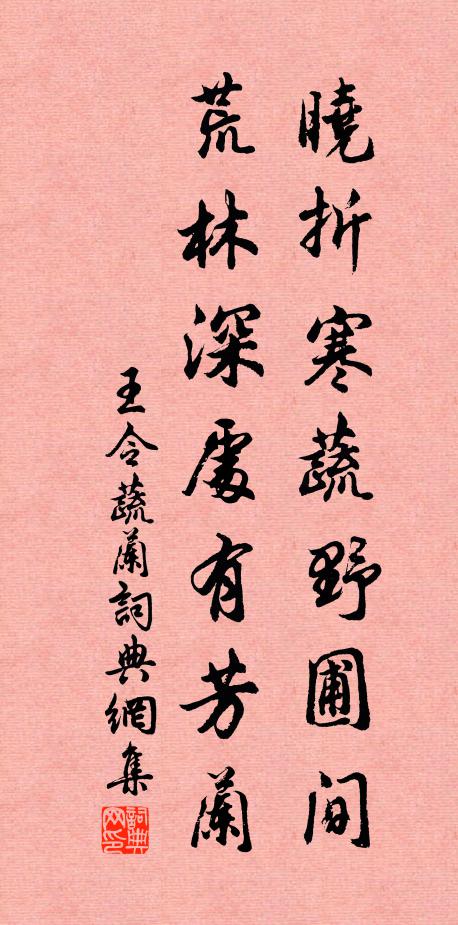 曉折寒蔬野圃間
荒林深處有芳蘭
王令蔬蘭詞典網集
詞典网印